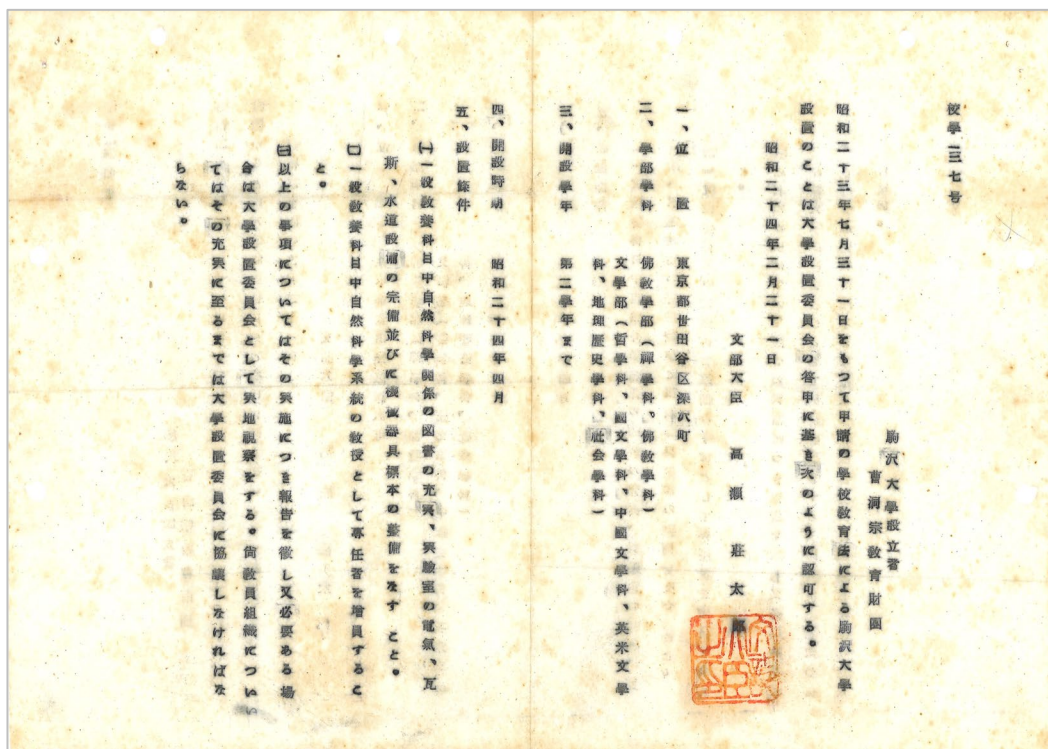 校學一三七号
駒沢大學設立者
曹洞宗教育財團
昭和二十三年七月三十一日をもつて申請の學校教育法による駒沢大學
設置のことは大學設置委員会の答申に基き次のように認可する。
昭和二十四年二月二十一日
文部大臣 高瀬莊太郎
一、位置 東京都世田谷区深沢町
二、學部學科 佛教學部（禪學科、佛教學科）
文學部（哲學科、國文學科、中國文學科、英米文學
科、地理歴史學科、社会學科）
三、開設學年 第二學年まで
四、開設時期 昭和二十四年四月
五、設置條件
㈠一般教養科目中自然科學関係の図書の充実、実驗室の電氣、瓦
斯、水道設備の完備並びに機械器具標本の整備をなす こと。
㈡一般教養科目中自然科學系統の教授として専任者を増員するこ
と。
㈢以上の事項についてはその実施につき報告を徴し又必要ある場
合は大學設置委員会として実地視察をする。尚教員組織についい
てはその充実に至るまでは大學設置委員会に協議しなければな
らない。